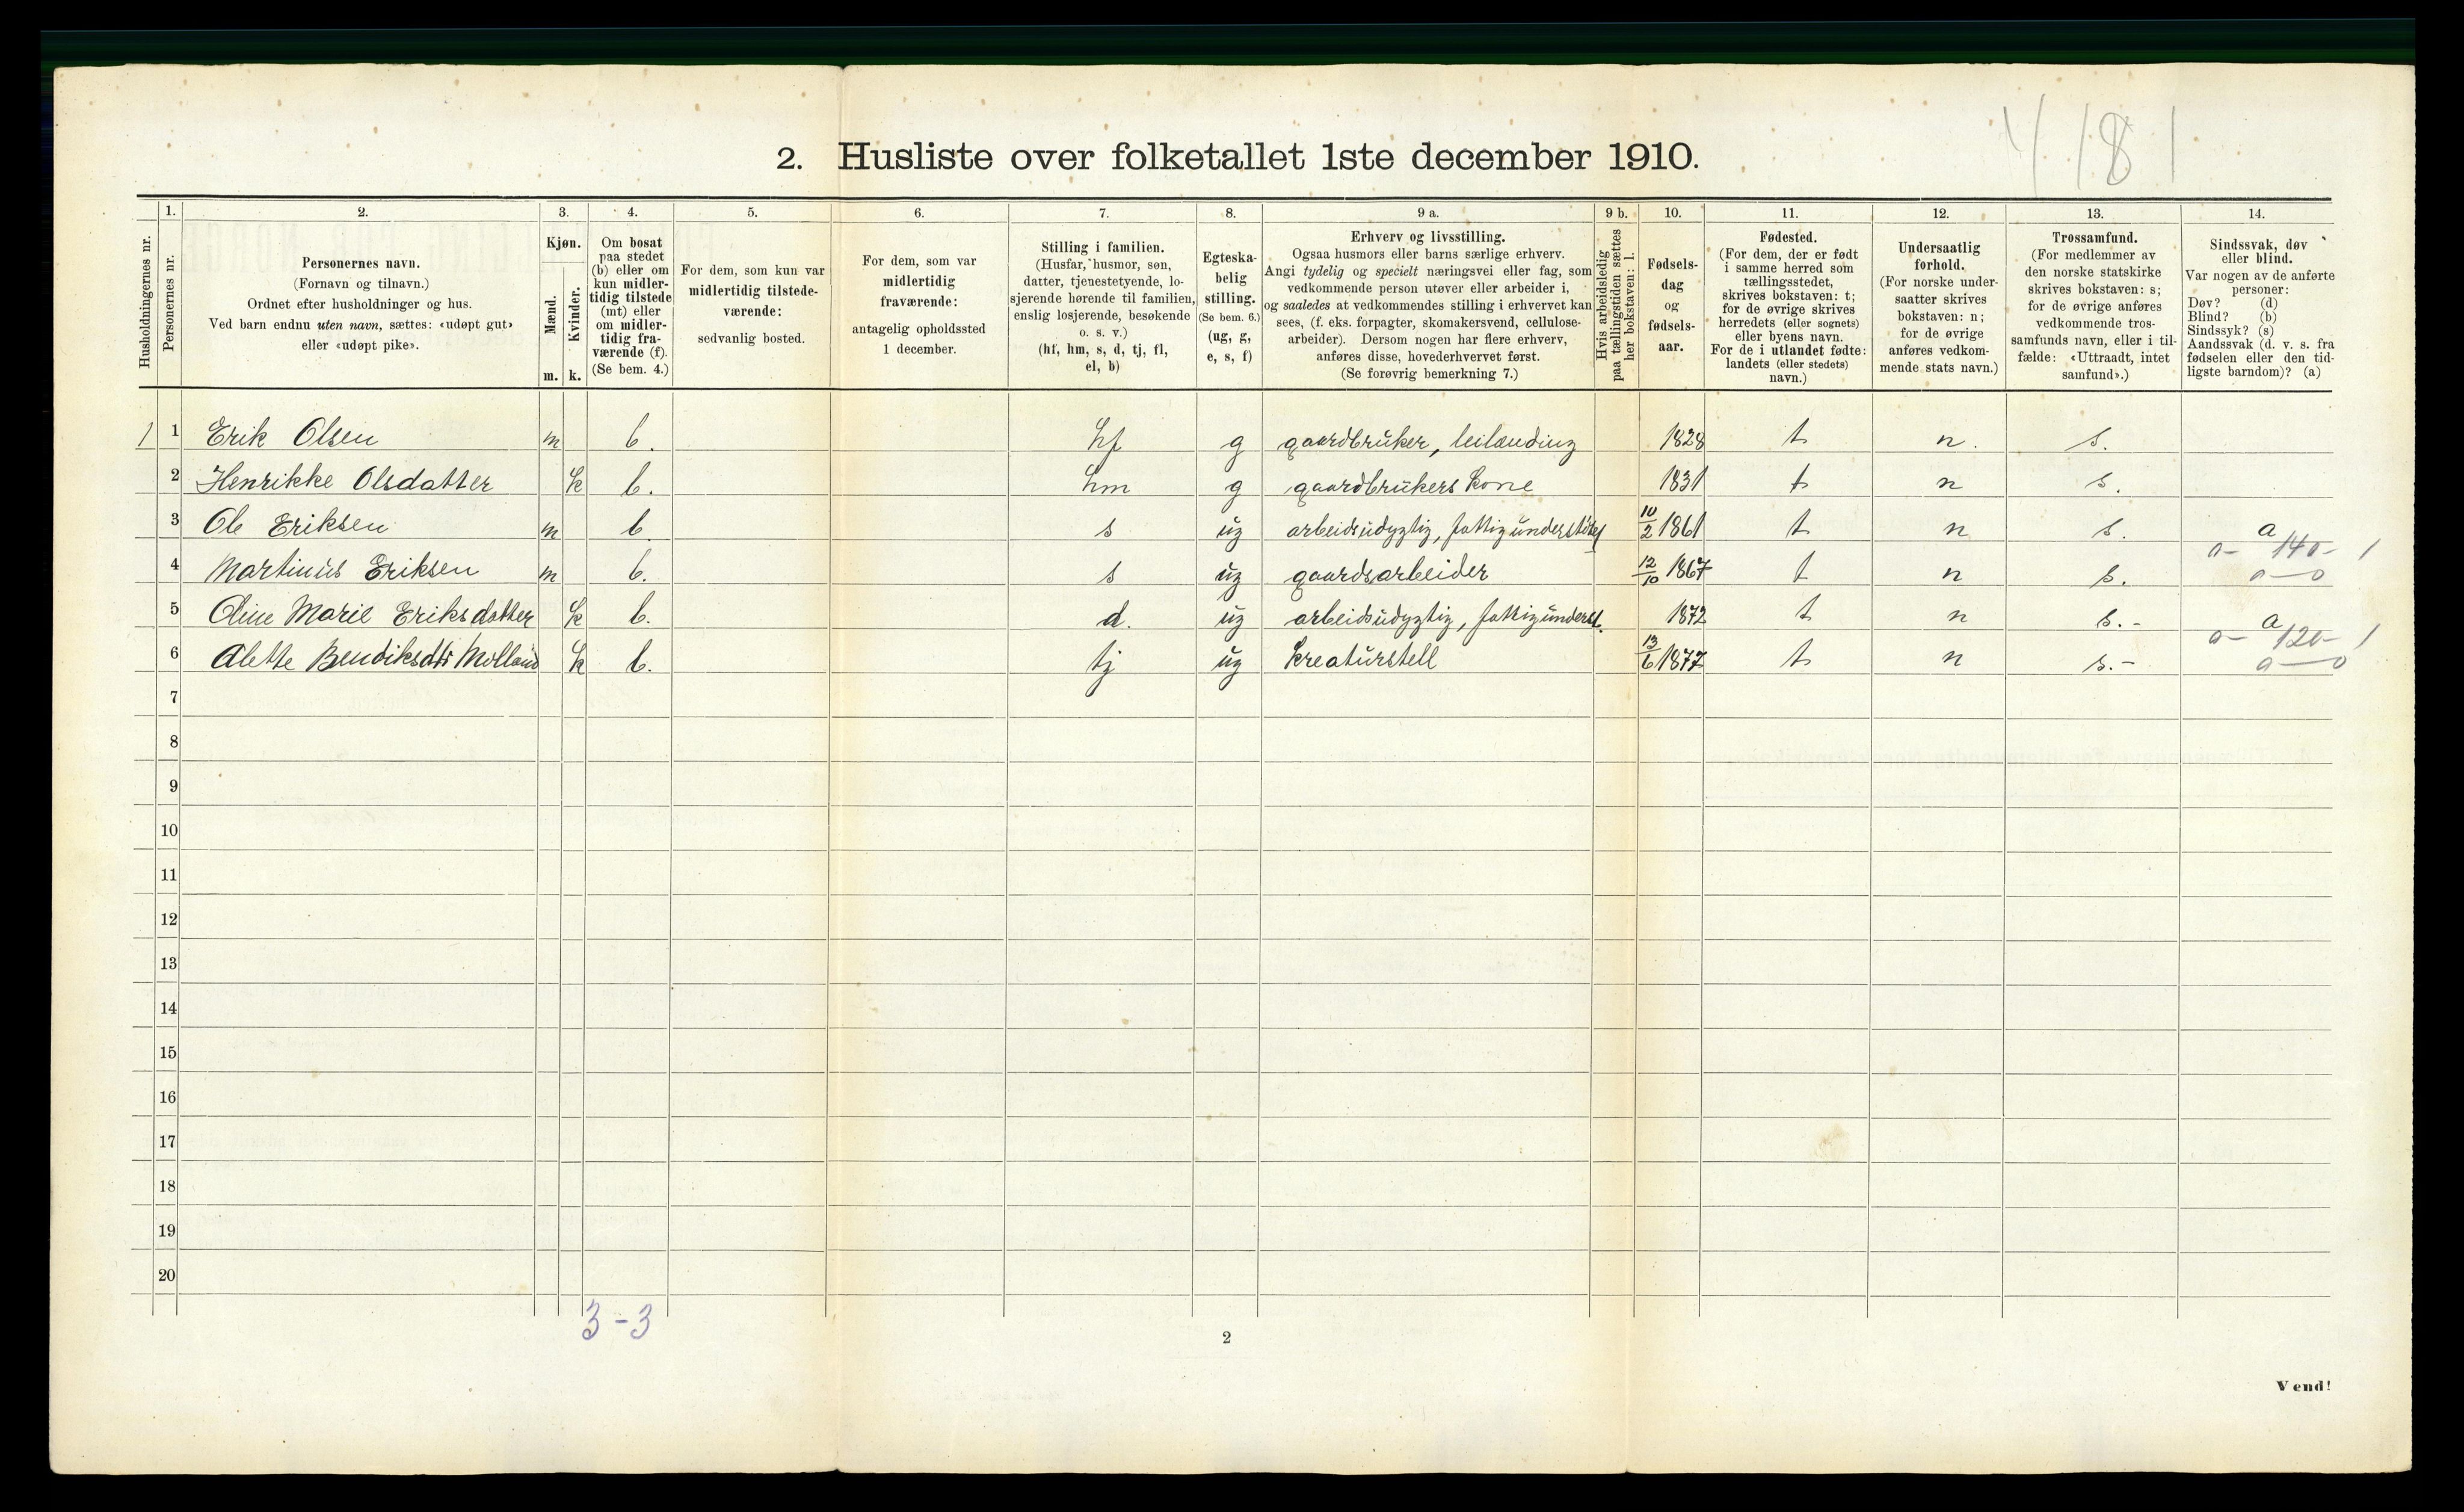 4181
2. Husliste over folketallet 1ste december 1910.
Husholdningernes nr.
1.
Personernes nr.
2.
Personernes navn.
(Fornavn og tilnavn.)
Ordnet efter husholdninger og hus.
Ved barn endnu uten navn, sættes: «udøpt gut»
eller «udøpt pike».
3.
Kjøn.
Mænd.
Kvinder.
m. k.
4.
Om bosat
paa stedet
(b) eller om
kun midler-
tidig tilstede
(mt) eller
om midler-
tidig fra-
værende (f).
(Se bem. 4.)
5.
For dem, som kun var
midlertidig tilstede-
værende:
sedvanlig bosted.
6.
For dem, som var
midlertidig
fraværende:
antagelig opholdssted
1 december.
7.
Stilling i familien.
(Husfar, husmor, søn,
datter, tjenestetyende, lo-
sjerende hørende til familien,
enslig losjerende, besøkende
o. s. v.)
(hf, hm, s, d, tj, fl,
el, b)
8.
Egteska-
belig
stilling.
(Se bem. 6.)
(ug, g,
e, s, f)
9 a.
Erhverv og livsstilling.
Ogsaa husmors eller barns særlige erhverv.
Angi tydelig og specielt næringsvei eller fag, som
vedkommende person utøver eller arbeider i,
og saaledes at vedkommendes stilling i erhvervet kan
sees, (f. eks. forpagter, skomakersvend, cellulose-
arbeider). Dersom nogen har flere erhverv,
anføres disse, hovederhvervet først.
(Se forøvrig bemerkning 7.)
9 b.
Hvis arbeidsledig
paa tællingstiden sættes
her bokstaven: l.
10.
Fødsels-
dag
og
fødsels-
aar.
11.
Fødested.
(For dem, der er født
i samme herred som
tællingsstedet,
skrives bokstaven: t;
for de øvrige skrives
herredets (eller sognets)
eller byens navn.
For de i utlandet fødte:
landets (eller stedets)
navn.)
12.
Undersaatlig
forhold.
(For norske under-
saatter skrives
bokstaven: n;
for de øvrige
anføres vedkom-
mende stats navn.)
13.
Trossamfund.
(For medlemmer av
den norske statskirke
skrives bokstaven: s;
for de øvrige anføres
vedkommende tros-
samfunds navn, eller i til-
fælde: «Uttraadt, intet
samfund».)
14.
Sindssvak, døv
eller blind.
Var nogen av de anførte
personer:
Døv? (d)
Blind? (b)
Sindssyk? (s)
Aandssvak (d. v. s. fra
fødselen eller den tid-
ligste barndom)? (a)
1 1 Erik Olsen m b. hf g gaardbruker, leilænding 1828 t n. s.
2 Henrikke Olsdatter k b. hm g gaardbrukers kone 1831 t n s.
3 Ole Eriksen m b s ug arbeidsudygtig, fattigunderstøttet 10/2 1861 t n s. a
a- 140- 1
4 Martinus Eriksen m b. s ug gaardsarbeider 12/10 1867 t n s. a—o
5 Oline Marie Eriksdatter k b. d. ug arbeidsudygtig, fattigunderst. 1872 t n s.- a
a- 120- 1
6 Alette Bendiksdtr Molland k b. tj ug kreaturstell 13/6 1877 t n s.- a—o
7
8
9
10
11
12
13
14
15
16
17
18
19
20
3-3
2
Vend!